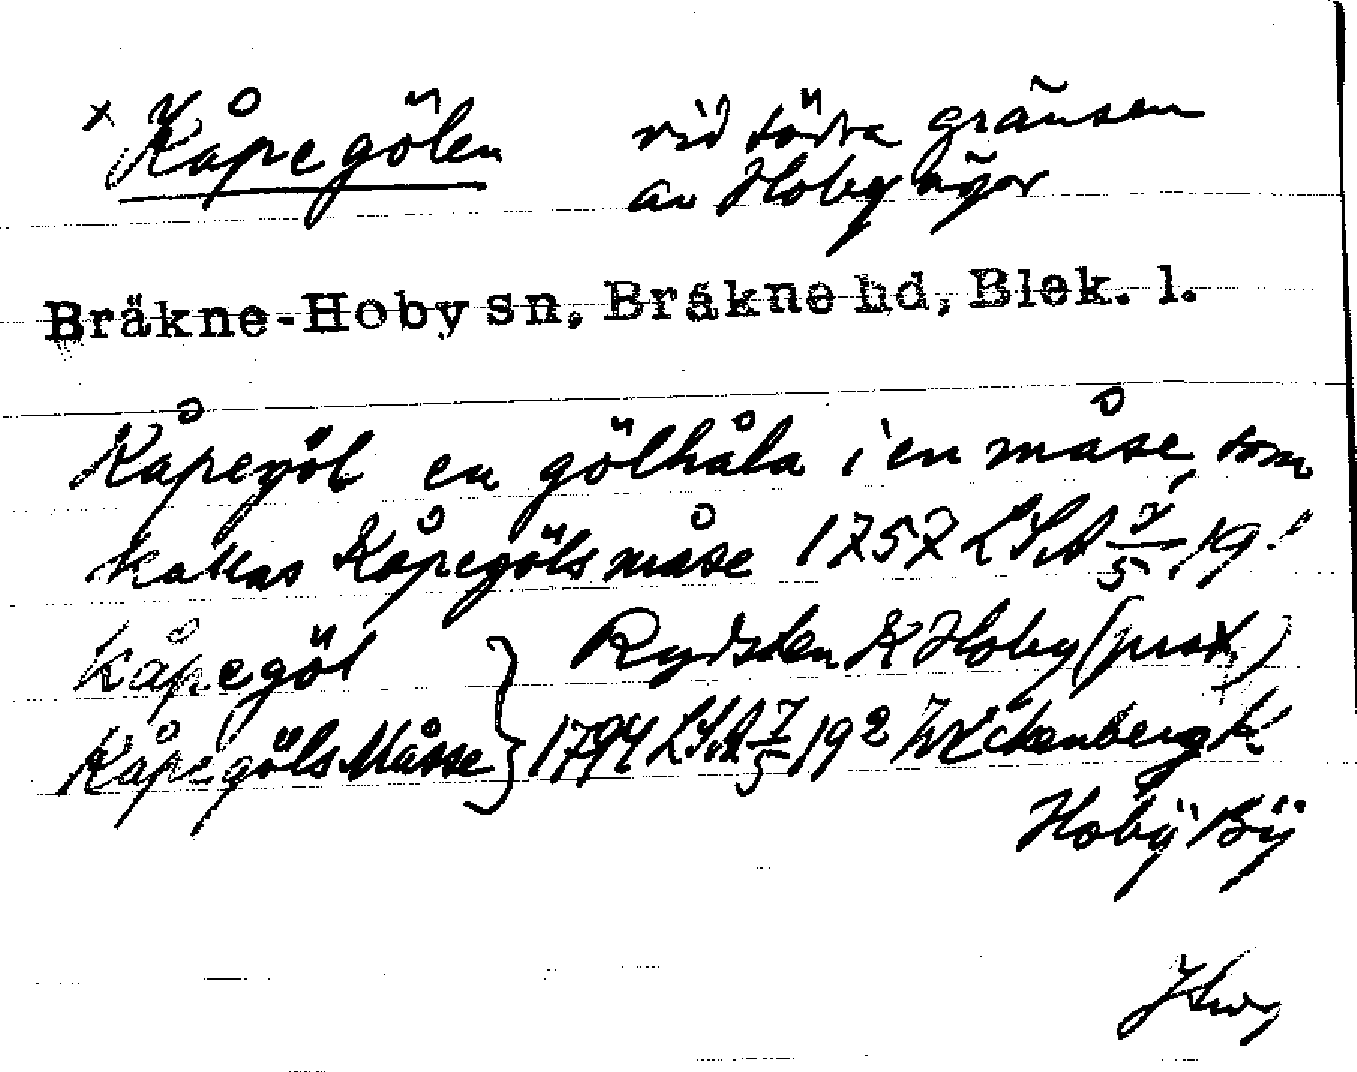 x Kåpegölen vid södra gränsen
av Hoby nÿor
Bräkne-Hoby sn, Bräkne hd, Blek. l.
Kåpegöl en gölhåla i en måse, som
kallas Kåpegöls måse 1757 LSA 7/5 19!
Kåpegöl } Rydsten K Hoby (prot.)
Kåpegöls Måsse } 1794 LSA 7/5 19²
Hobÿ Bÿ